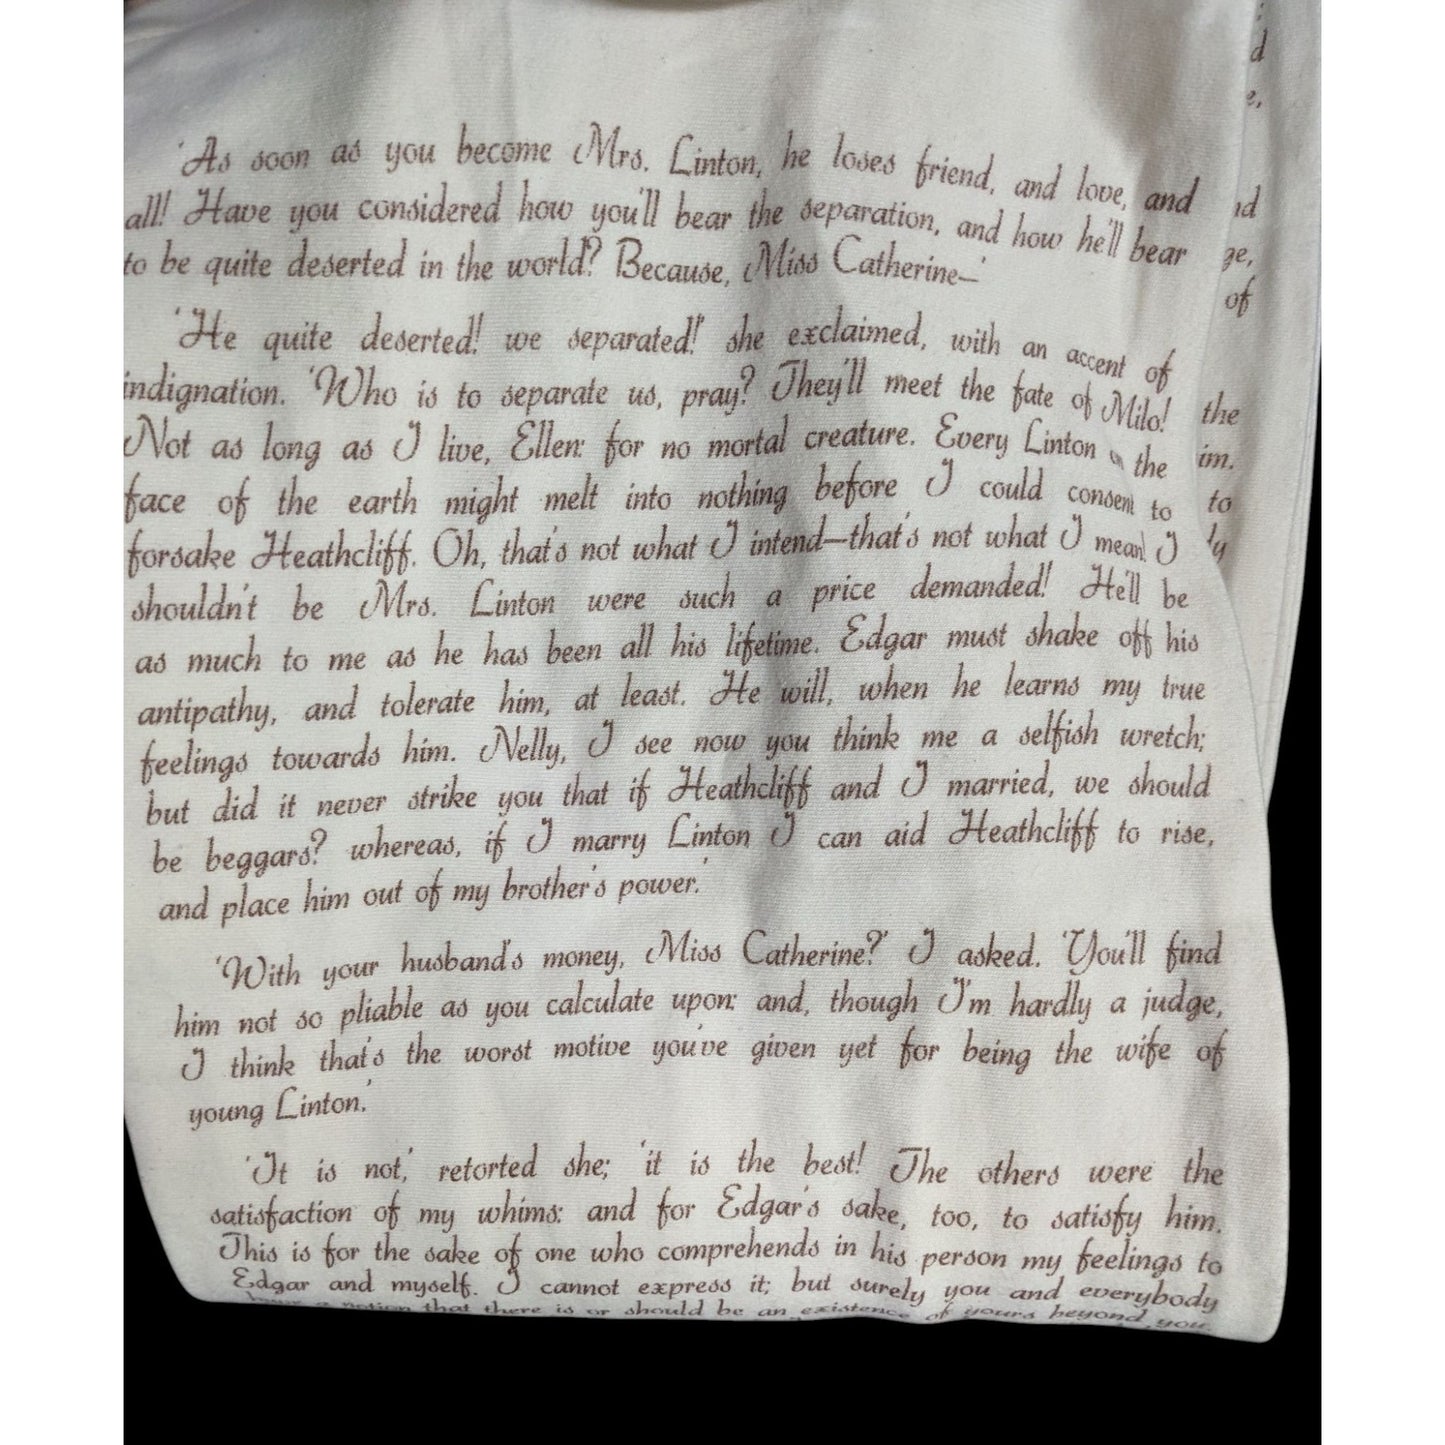 'As soon as you become Mrs. Linton, he loses friend, and love, and
all! Have you considered how you'll bear the separation, and how he'll bear
to be quite deserted in the world? Because, Miss Catherine—'
'He quite deserted! we separated!' she exclaimed, with an accent of
indignation. 'Who is to separate us, pray? They'll meet the fate of Milo!
Not as long as I live, Ellen: for no mortal creature. Every Linton on the
face of the earth might melt into nothing before I could consent to
forsake Heathcliff. Oh, that's not what I intend—that's not what I mean! I
shouldn't be Mrs. Linton were such a price demanded! He'll be
as much to me as he has been all his lifetime. Edgar must shake off his
antipathy, and tolerate him, at least. He will, when he learns my true
feelings towards him. Nelly, I see now you think me a selfish wretch;
but did it never strike you that if Heathcliff and I married, we should
be beggars? whereas, if I marry Linton I can aid Heathcliff to rise,
and place him out of my brother's power.'
'With your husband's money, Miss Catherine?' I asked. 'You'll find
him not so pliable as you calculate upon: and, though I'm hardly a judge,
I think that's the worst motive you've given yet for being the wife of
young Linton.'
'It is not,' retorted she; 'it is the best! The others were the
satisfaction of my whims: and for Edgar's sake, too, to satisfy him.
This is for the sake of one who comprehends in his person my feelings to
Edgar and myself. I cannot express it; but surely you and everybody
have a notion that there is or should be an existence of yours beyond you.
of
the
to